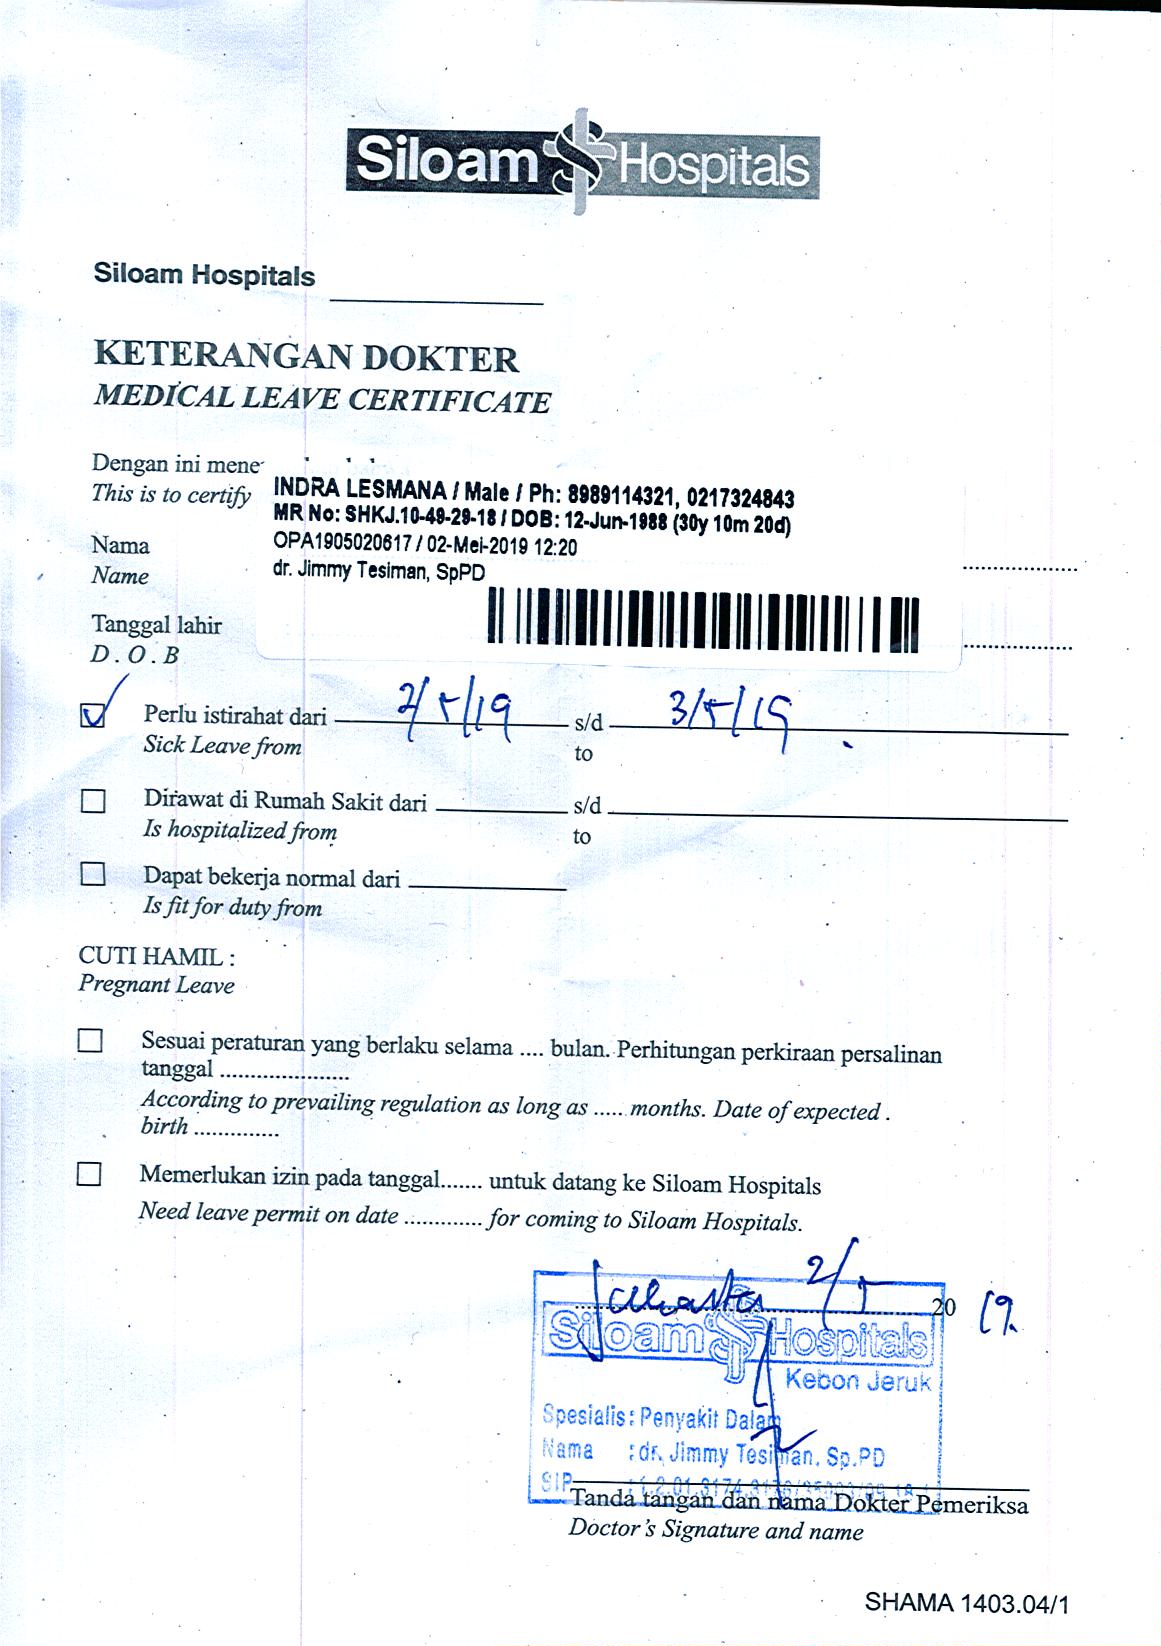 Siloam Hospitals
Siloam Hospitals
KETERANGAN DOKTER
MEDICAL LEAVE CERTIFICATE
Dengan ini mene
This is to certify
INDRA LESMANA / Male / Ph: 8989114321, 0217324843
MR No: SHKJ.10-49-29-18 / DOB: 12-Jun-1988 (30y 10m 20d)
OPA1905020617 / 02-Mei-2019 12:20
dr. Jimmy Tesiman, SpPD
Nama
Name
Tanggal lahir
D.O.B
Perlu istirahat dari 2/5/19 s/d 3/5/19
Sick Leave from to
Dirawat di Rumah Sakit dari s/d
Is hospitalized from to
Dapat bekerja normal dari
Is fit for duty from
CUTI HAMIL :
Pregnant Leave
Sesuai peraturan yang berlaku selama .... bulan. Perhitungan perkiraan persalinan
tanggal .....................
According to prevailing regulation as long as ..... months. Date of expected .
birth ..............
Memerlukan izin pada tanggal....... untuk datang ke Siloam Hospitals
Need leave permit on date ............. for coming to Siloam Hospitals.
Jakarta 2/5 20 19.
Siloam Hospitals
Kebon Jeruk
Spesialis : Penyakit Dalam
Nama : dr. Jimmy Tesiman. Sp.PD
SIP
Tanda tangan dan nama Dokter Pemeriksa
Doctor's Signature and name
SHAMA 1403.04/1